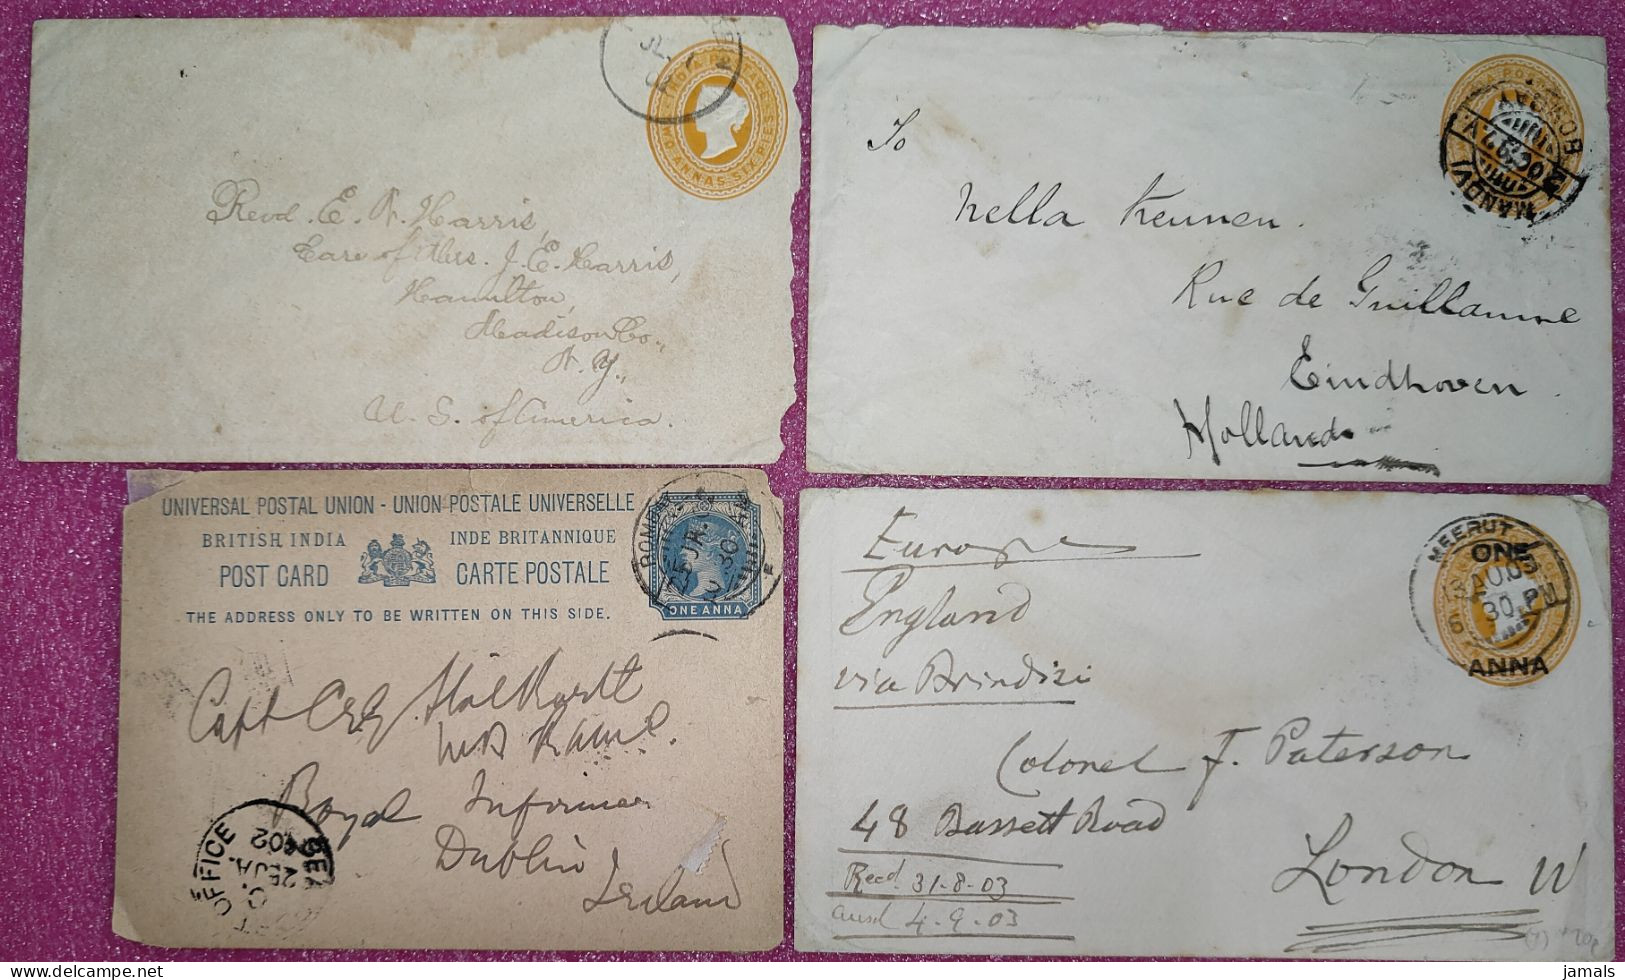 INDIA POSTAGE
TWO ANNAS SIX PIES
JU
Revd. E. N. Harris,
Care of Mrs. J. E. Harris,
Hamilton,
Madison Co.,
N. Y.,
U. S. of America.
BOMBAY
MANDVI
To
Nella Keunen.
Rue de Guillaume
Eindhoven
Holland
UNIVERSAL POSTAL UNION - UNION POSTALE UNIVERSELLE
BRITISH INDIA
INDE BRITANNIQUE
POST CARD
CARTE POSTALE
THE ADDRESS ONLY TO BE WRITTEN ON THIS SIDE.
ONE ANNA
BOMBAY
JA
30
Capt
Royal
Dublin
Ireland
OFFICE
SEA
JA
02
MEERUT
ONE
AU 03
6 30 PM
ANNA
Europe
England
via Brindisi
Colonel F. Paterson
48 Bassett Road
London W
Recd. 31-8-03
ansd 4-9-03
© jamals